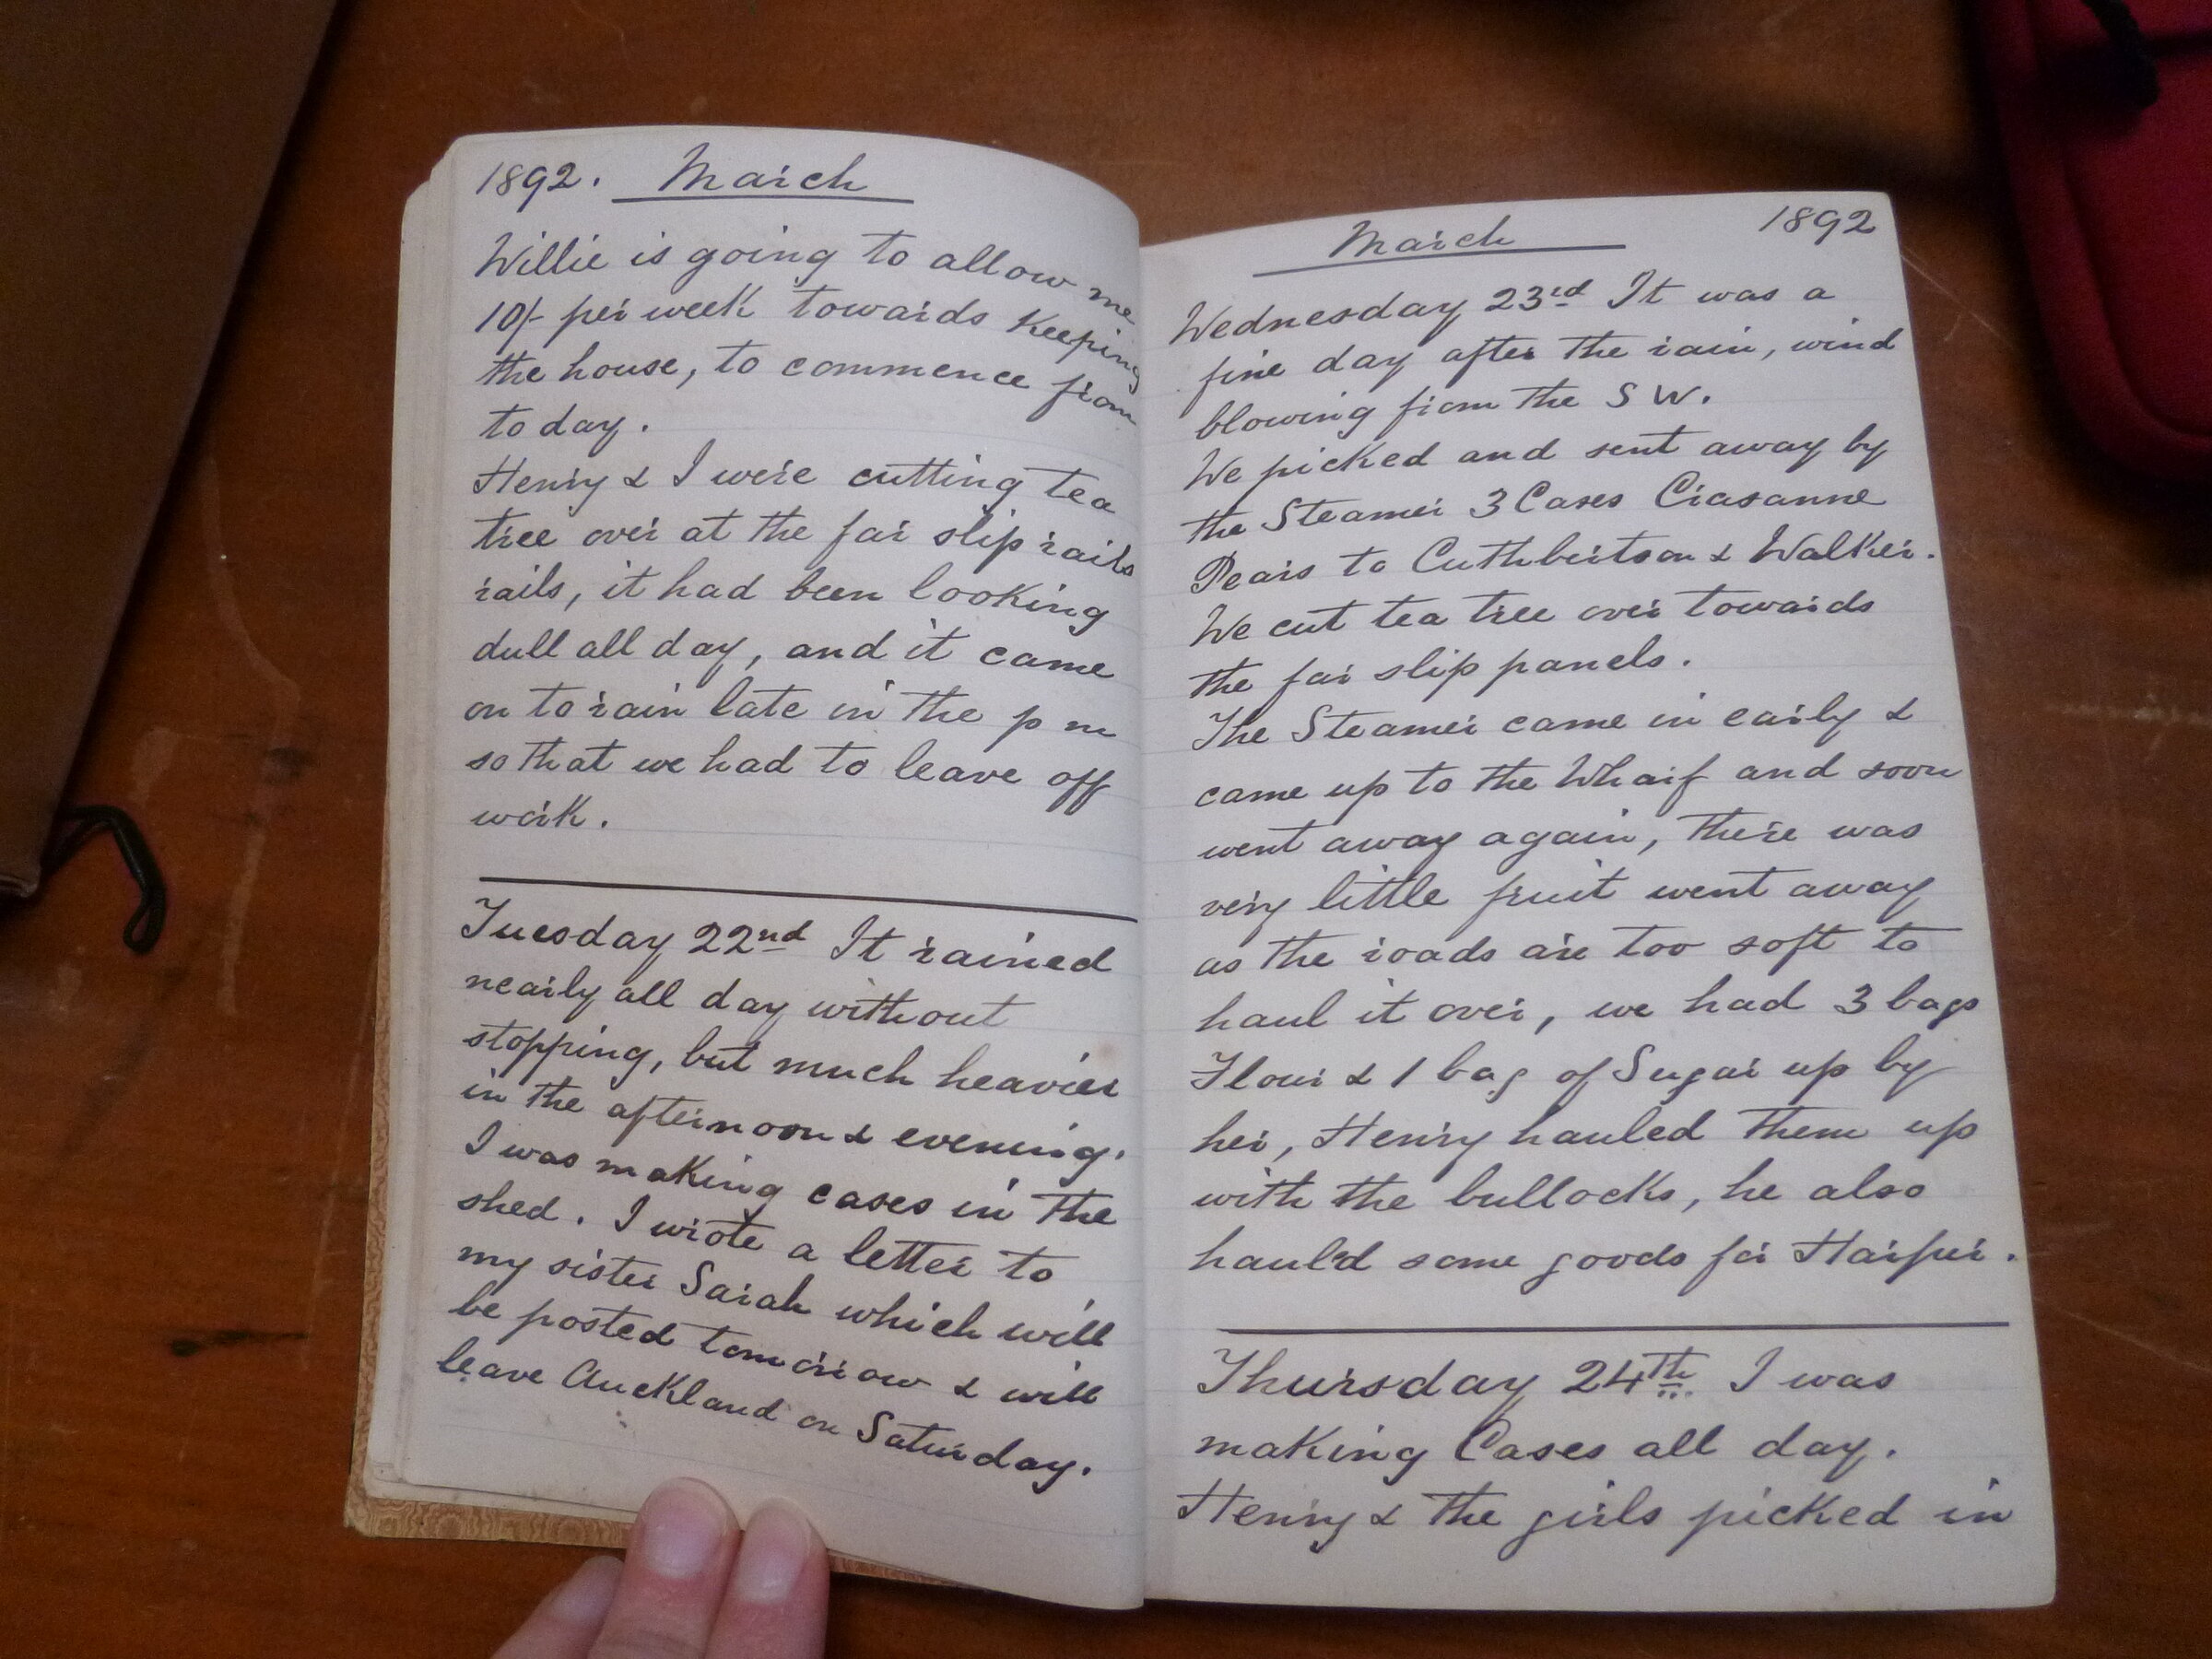 1892. March
Willie is going to allow me
10/- per week towards Keeping
the house, to commence from
to day.
Henry & I were cutting tea
tree over at the far slip rails
rails, it had been looking
dull all day, and it came
on to rain late in the p m
so that we had to leave off
work.
Tuesday 22nd It rained
nearly all day without
stopping, but much heavier
in the afternoon & evening.
I was making cases in the
shed. I wrote a letter to
my sister Sarah which will
be posted tomorrow & will
leave Auckland on Saturday.
March 1892
Wednesday 23rd It was a
fine day after the rain, wind
blowing from the S W.
We picked and sent away by
the Steamer 3 Cases Crasanne
Pears to Cuthbertson & Walker.
We cut tea tree over towards
the far slip panels.
The Steamer came in early &
came up to the Wharf and soon
went away again, there was
very little fruit went away
as the roads are too soft to
haul it over, we had 3 bags
Flour & 1 bag of Sugar up by
her, Henry hauled them up
with the bullocks, he also
haul'd some goods for Harper.
Thursday 24th I was
making Cases all day.
Henry & the girls picked in